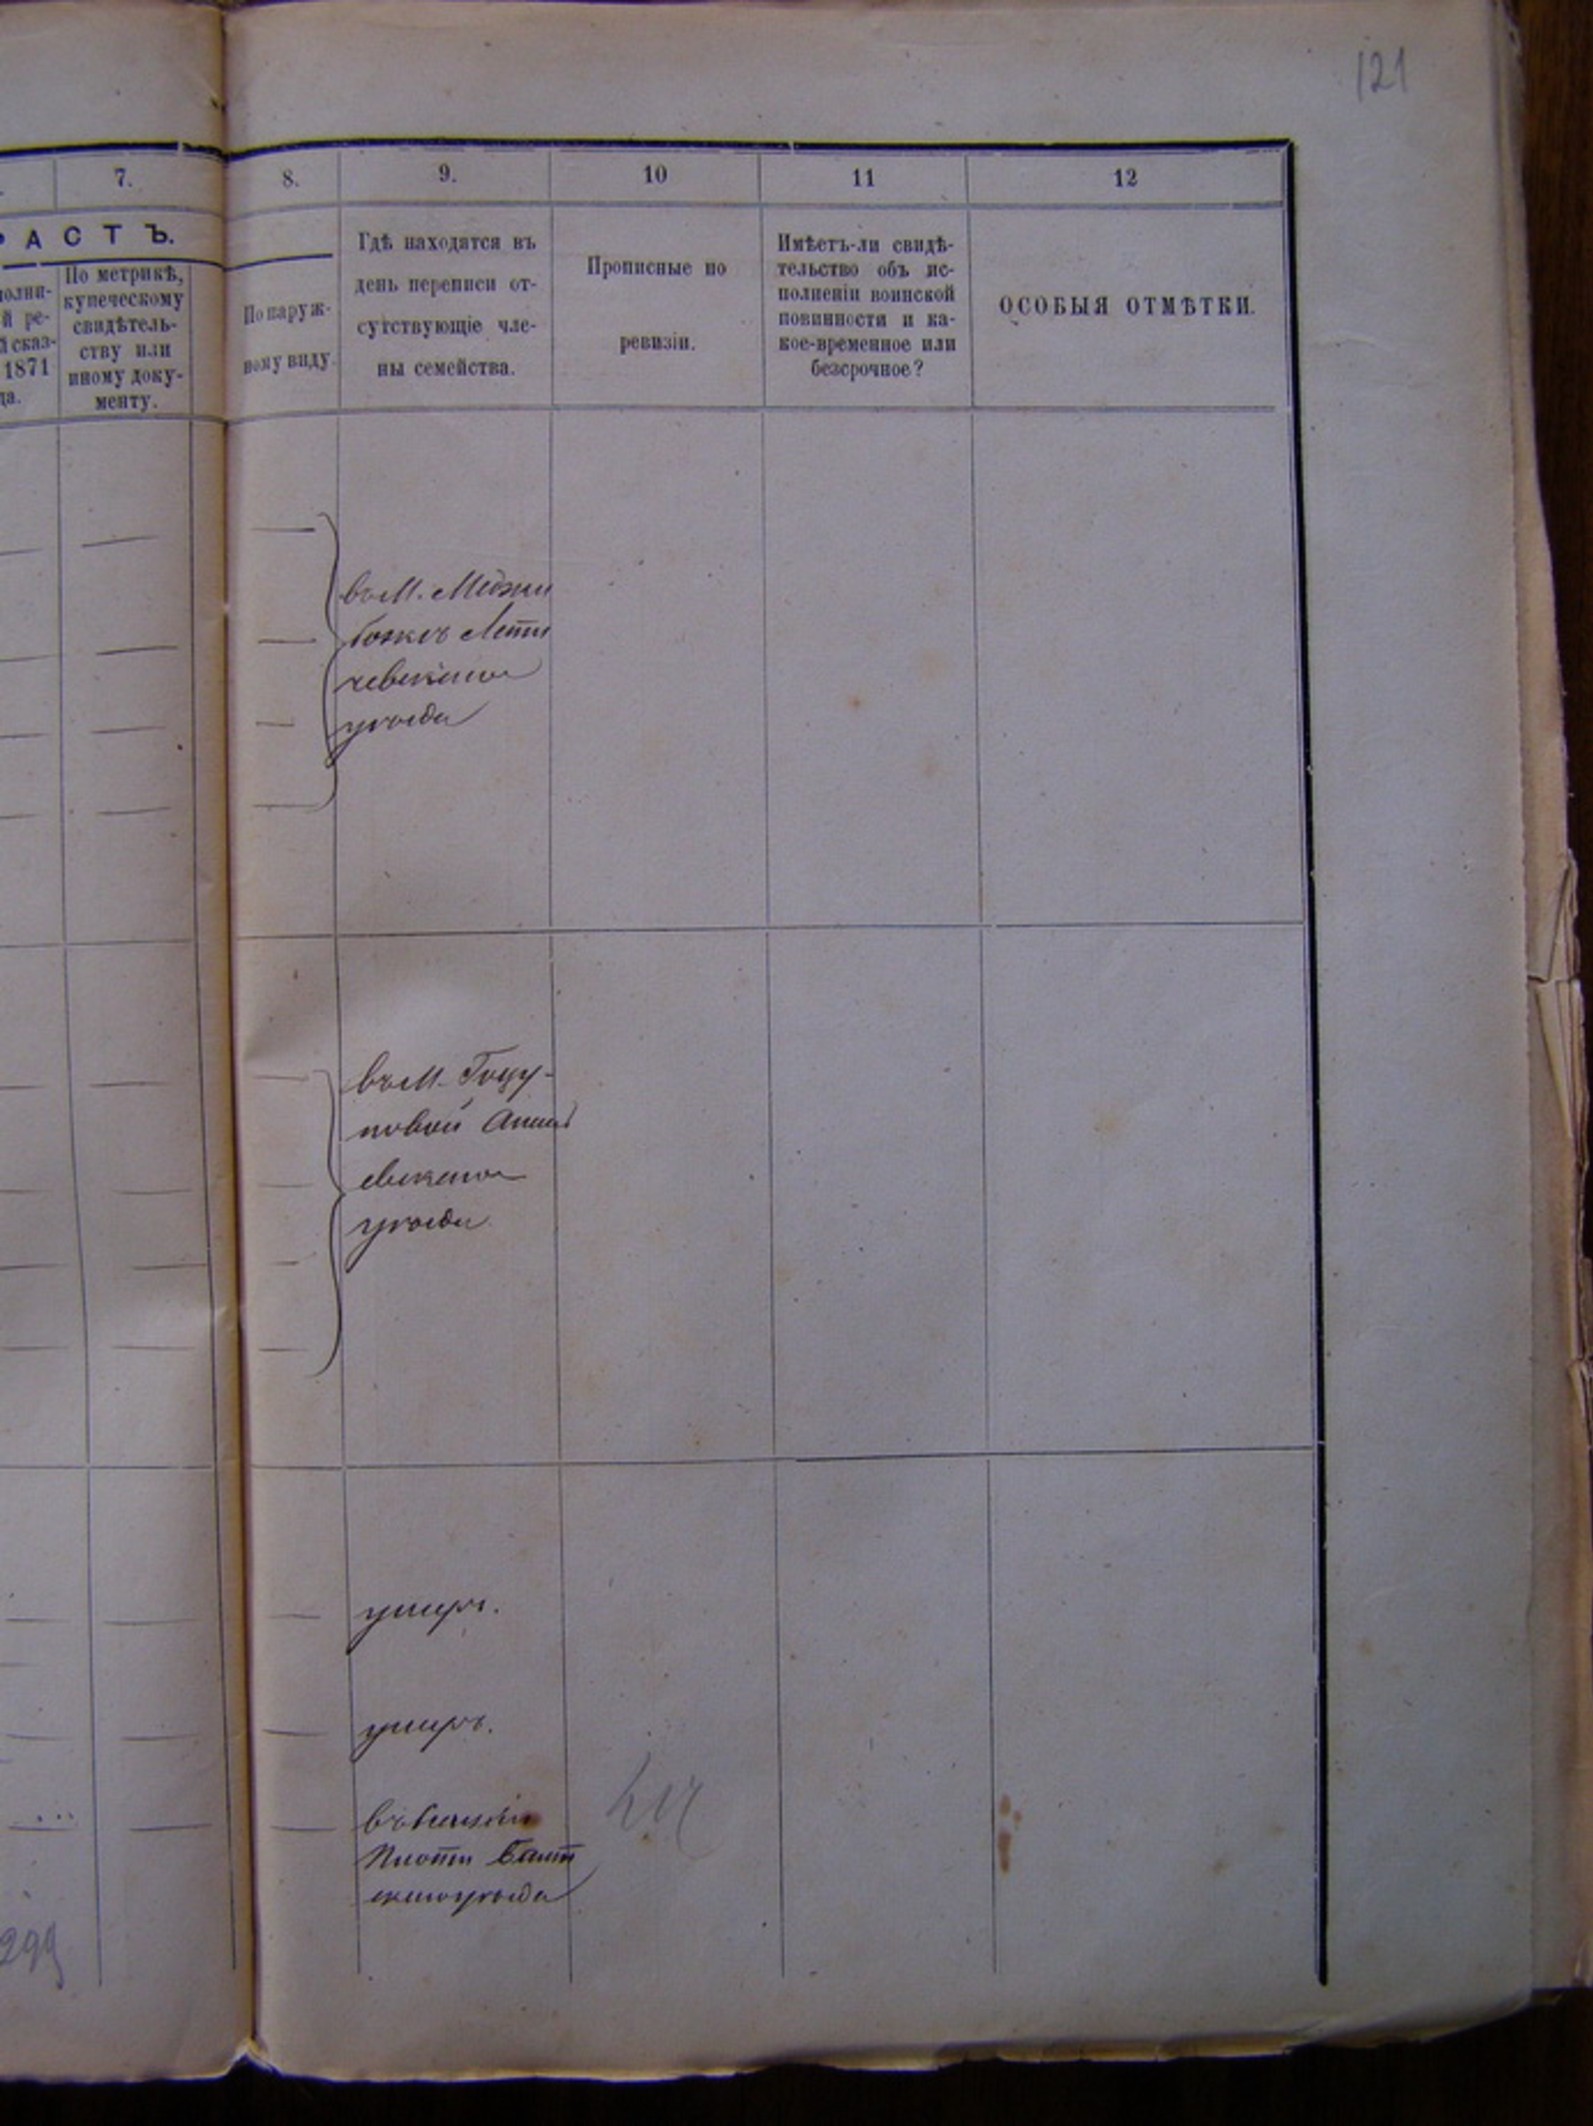 121
7.
8.
9.
10
11
12
РАСТЪ.
полни-
й ре-
й сказ-
1871
да.
По метрикѣ,
купеческому
свидѣтель-
ству или
иному доку-
менту.
По наруж-
ному виду.
Гдѣ находятся въ
день переписи от-
сутствующіе чле-
ны семейства.
Прописные по
ревизіи.
Имѣетъ-ли свидѣ-
тельство объ ис-
полненіи воинской
повинности и ка-
кое-временное или
безсрочное?
ОСОБЫЯ ОТМѢТКИ.
въ М. Меджи
божѣ Лети
чевскаго
уѣзда
въ М.
уѣзда
умеръ.
умеръ.
299